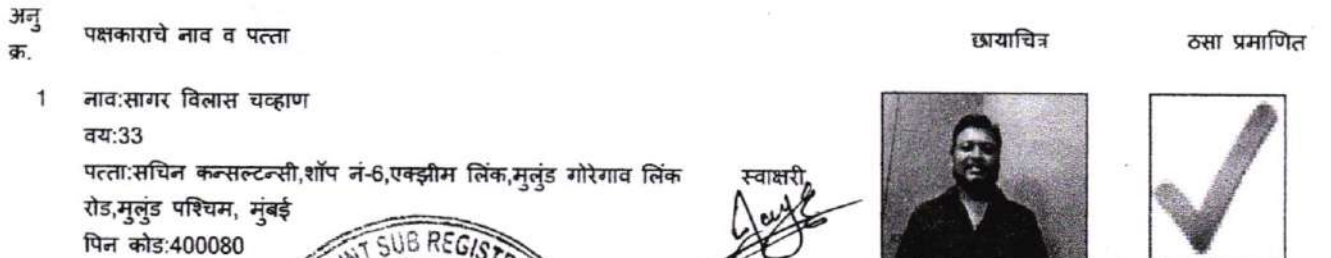 अनु क्र. पक्षकाराचे नाव व पत्ता छायाचित्र ठसा प्रमाणित
1 नाव:सागर विलास चव्हाण
वय:33
पत्ता:सचिन कन्सल्टन्सी,शॉप नं-6,एक्झीम लिंक,मुलुंड गोरेगाव लिंक
रोड,मुलुंड पश्चिम, मुंबई
पिन कोड:400080
स्वाक्षरी
SUB REGIST